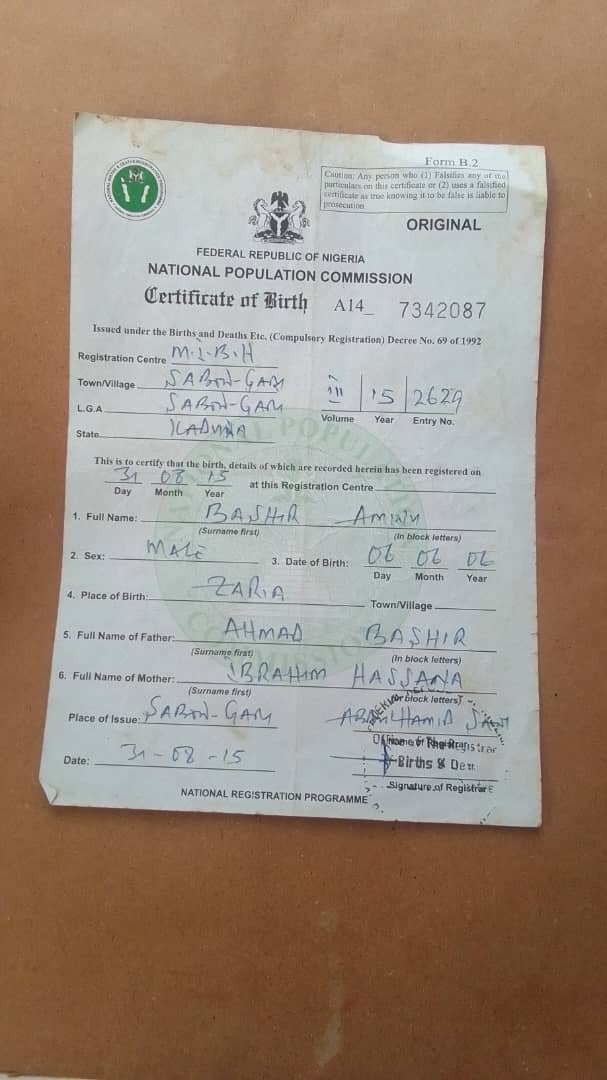 Form B.2
Caution: Any person who (1) Falsifies any of the
particulars on this certificate or (2) uses a falsified
certificate as true knowing it to be false is liable to
prosecution
ORIGINAL
FEDERAL REPUBLIC OF NIGERIA
NATIONAL POPULATION COMMISSION
Certificate of Birth A14_ 7342087
Issued under the Births and Deaths Etc. (Compulsory Registration) Decree No. 69 of 1992
Registration Centre M.I.B.H
Town/Village SABON-GARI
L.G.A SABON-GARI
III 15 2629
Volume Year Entry No.
State KADUNA
This is to certify that the birth, details of which are recorded herein has been registered on
31 08 15 at this Registration Centre
Day Month Year
1. Full Name: BASHIR AMINU
(Surname first) (In block letters)
2. Sex: MALE 3. Date of Birth: 06 06 06
Day Month Year
4. Place of Birth: ZARIA Town/Village
5. Full Name of Father: AHMAD BASHIR
(Surname first) (In block letters)
6. Full Name of Mother: IBRAHIM HASSANA
(Surname first) (In block letters)
Place of Issue: SABON-GARI ABDULHAMID SANI
Name of The Registrar
Births & De
Date: 31-08-15
Signature of Registrar
NATIONAL REGISTRATION PROGRAMME